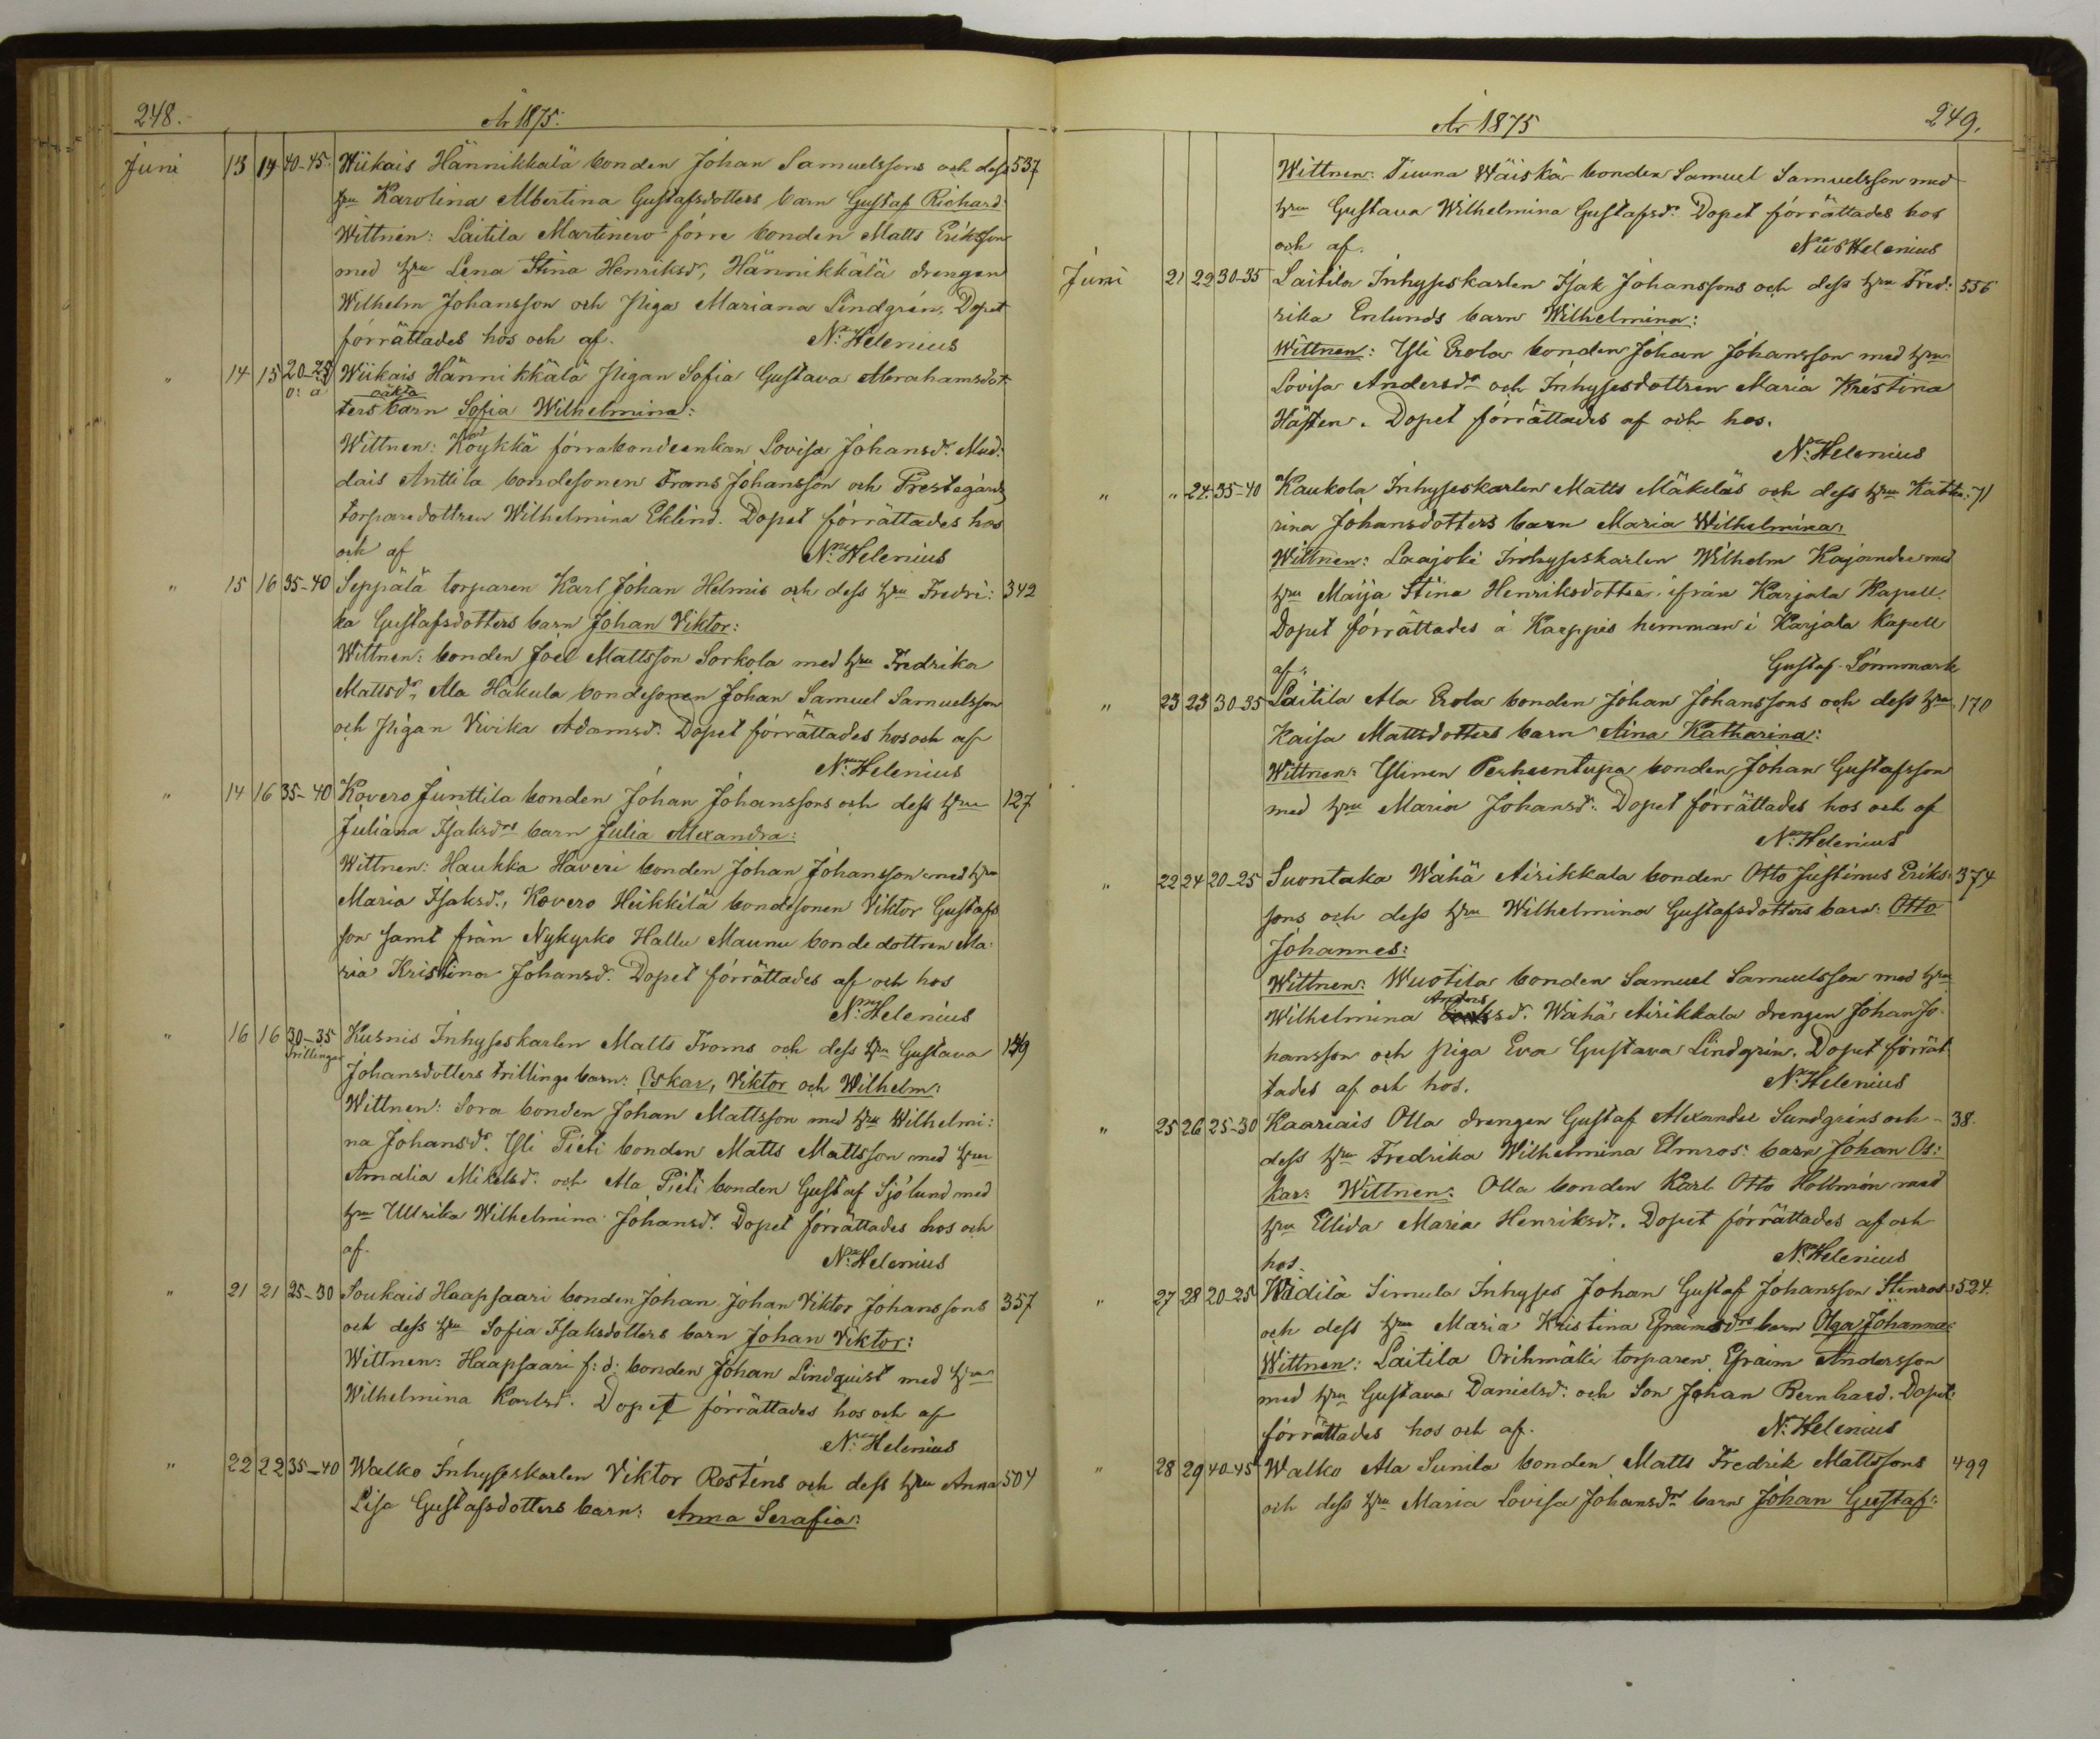 248.
År 1875:
Juni 13 14 40-45: Wiikais Hännikkälä bonden Johan Samuelssons och dess 537
hru Karolina Albertina Gustafsdotters barn Gustaf Richard:
Wittnen: Laitila Martinero förre bonden Matts Eriksson
med hru Lena Stina Henriksdr, Hännikkälä drengen
Wilhelm Johansson och Piga Mariana Lindgrén. Dopet
förrättades hos och af. N. Helenius
" 14 15 20-25 Wiikais Hännikkälä Pigan Sofia Gustava Abrahamsdot-
o: ä oäkta
ters barn Sofia Wilhelmina:
Wittnen: Köykkä förrabondeenkan Lovisa Johansdr. Mud:
dais Anttila bondesonen Frans Johansson och Prestegårds
torparedottren Wilhelmina Eklind. Dopet förrättades hos
och af N. Helenius
" 15 16 35-40 Seppälä torparen Karl Johan Helmis och dess hru Fredri: 342
ka Gustafsdotters barn Johan Viktor:
Wittnen: bonden Joel Mattsson Sorkola med hru Fredrika
Mattsdr, Ala Hakula bondesonen Johan Samuel Samuelsson
och Pigan Vivika Adamsdr. Dopet förrättades hos och af
N. Helenius
" 14 16 35-40 Kovero Junttila bonden Johan Johanssons och dess hru 127
Juliana Isaksdrs barn Julia Alexandra:
Wittnen: Haukka Haveri bonden Johan Johansson med hru
Maria Isaksdr., Kovero Heikkilä bondesonen Viktor Gustafs
son samt från Nykyrko Hallu Maunu bondedottren Ma:
ria Kristina Johansdr. Dopet förrättades af och hos
N. Helenius
" 16 16 30-35 Kusnis Inhyseskarlen Matts Froms och dess hru Gustava 159
Trillingar
Johansdotters trillinge barn: Oskar, Viktor och Wilhelm:
Wittnen: Sora bonden Johan Mattsson med hru Wilhelmi:
na Johansdr. Yli Pieti bonden Matts Mattsson med hru
Amalia Mikelsdr. och Ala Pieti bonden Gustaf Sjölund med
hru Ullrika Wilhelmina Johansdr. Dopet förrättades hos och
af. N. Helenius
" 21 21 25-30 Soukais Haapsaari bonden Johan Johan Viktor Johanssons 357
och dess hru Sofia Isaksdotters barn Johan Viktor:
Wittnen: Haapsaari f: d: bonden Johan Lindquist med hru
Wilhelmina Karlsdr. Dopet förrättades hos och af
N. Helenius
" 22 22 35-40 Walko Inhyseskarlen Viktor Rosténs och dess hru Anna 504
Lisa Gustafsdotters barn: Anna Serafia:
År 1875
249.
Wittnen: Tiuna Wäiskä bonden Samuel Samuelsson med
hru Gustava Wilhelmina Gustafsdr. Dopet förrättades hos
och af. N. Helenius
Juni 21 22 30-35 Laitila Inhyseskarlen Isak Johanssons och dess hru Fred: 556
rika Enlunds barn Wilhelmina:
Wittnen: Yli Erola bonden Johan Johansson med hru
Lovisa Andersdr och Inhysesdottren Maria Kristina
Hästen. Dopet förrättades af och hos.
N. Helenius
" " 24. 35-40 Kaukola Inhyseskarlen Matts Mäkeläs och dess hru Katha: 71
rina Johansdotters barn Maria Wilhelmina:
Wittnen: Laajoki Inhyseskarlen Wilhelm Kajander med
hru Maija Stina Henriksdotter ifrån Karjala Kapell.
Dopet förrättades å Karppis hemman i Karjala Kapell
af: Gustaf Lönnmark
" 23 23 30-35 Laitila Ala Erola bonden Johan Johanssons och dess hru 170
Kaisa Mattsdotters barn Aina Katharina:
Wittnen: Ylinen Perheentupa bonden Johan Gustafsson
med hru Maria Johansdr. Dopet förrättades hos och af
N. Helenius
" 22 24 20-25 Suontaka Wähä Airikkala bonden Otto Justinus Eriks: 374
sons och dess hru Wilhelmina Gustafsdotters barn: Otto
Johannes:
Wittnen: Wuotila bonden Samuel Samuelsson med hru
Anders
Wilhelmina sdr. Wähä Airikkala drengen Johan Jo-
hansson och Piga Eva Gustava Lindgrén. Dopet förrät-
tades af och hos. N. Helenius
" 25 26 25-30 Kaariais Olla drengen Gustaf Alexander Sundgréns och 38.
dess hru Fredrika Wilhelmina Elmros: barn Johan Os:
kar: Wittnen: Olla bonden Karl Otto Hollmén med
hru Elida Maria Henriksdr.. Dopet förrättades af och
hos. N. Helenius
" 27 28 20-25 Widilä Simula Inhyses Johan Gustaf Johansson Stenroos 524.
och dess hru Maria Kristina Efraimsdrs barn Olga Johanna:
Wittnen: Laitila Orihmäki torparen Efraim Andersson
med hru Gustava Danielsdr. och Son Johan Bernhard. Dopet
förrättades hos och af. N. Helenius
" 28 29 40-45 Walko Ala Sunila bonden Matts Fredrik Mattssons 499
och dess hru Maria Lovisa Johansdrs barn Johan Gustaf: